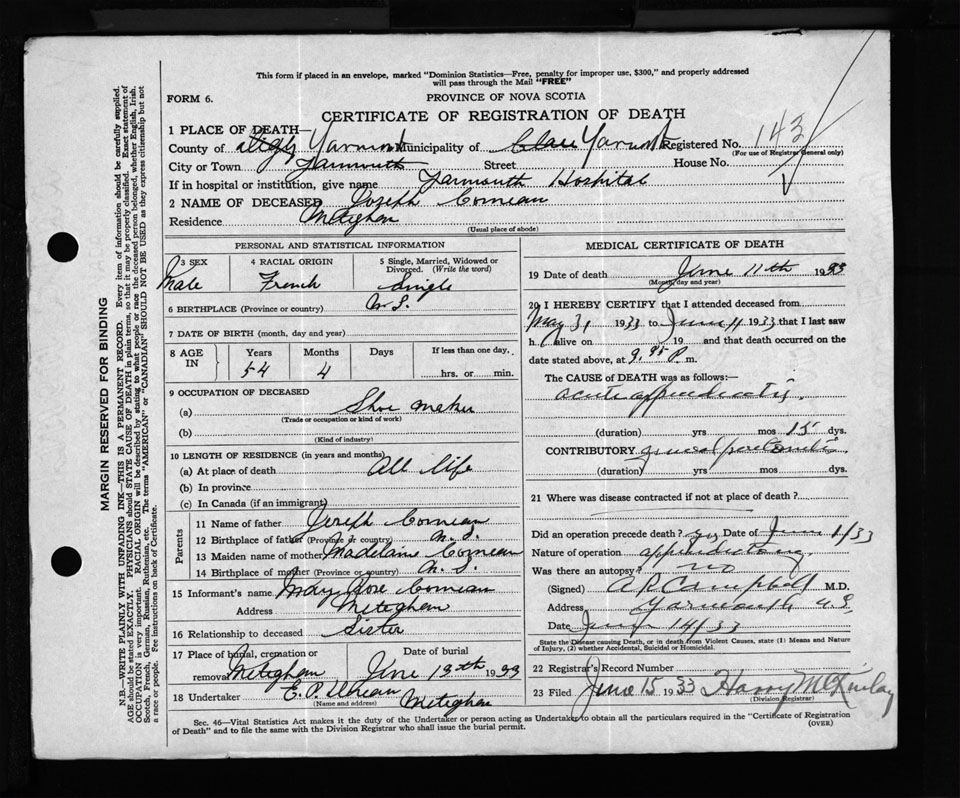 This form if placed in an envelope, marked "Dominion Statistics—Free, penalty for improper use, $300," and properly addressed
will pass through the Mail "FREE"
FORM 6.
PROVINCE OF NOVA SCOTIA
CERTIFICATE OF REGISTRATION OF DEATH
1 PLACE OF DEATH—
County of Digby Yarmouth Municipality of Clare Yarmouth Registered No. 143
(For use of Registrar General only)
City or Town Yarmouth Street House No.
If in hospital or institution, give name Yarmouth Hospital
2 NAME OF DECEASED Joseph Comeau
Residence Meteghan
(Usual place of abode)
PERSONAL AND STATISTICAL INFORMATION
3 SEX 4 RACIAL ORIGIN 5 Single, Married, Widowed or
Divorced. (Write the word)
Male French Single
6 BIRTHPLACE (Province or country) N.S.
7 DATE OF BIRTH (month, day and year)
8 AGE IN Years Months Days If less than one day,
54 4 hrs. or min.
9 OCCUPATION OF DECEASED
(a) Shoe Maker
(Trade or occupation or kind of work)
(b)
(Kind of industry)
10 LENGTH OF RESIDENCE (in years and months)
(a) At place of death All life
(b) In province
(c) In Canada (if an immigrant)
Parents
11 Name of father Joseph Comeau
12 Birthplace of father (Province or country) N.S.
13 Maiden name of mother Madelaine Comeau
14 Birthplace of mother (Province or country) N.S.
15 Informant's name Mary Rose Comeau
Address Meteghan
16 Relationship to deceased Sister
17 Place of burial, cremation or Date of burial
removal Meteghan June 13th 1933
18 Undertaker E. P.
(Name and address) Meteghan
MEDICAL CERTIFICATE OF DEATH
19 Date of death June 11th 1933
(Month, day and year)
20 I HEREBY CERTIFY that I attended deceased from
May 31 1933 to June 11 1933 that I last saw
h alive on 19 and that death occurred on the
date stated above, at P. m.
The CAUSE of DEATH was as follows:—
acute appendicitis.
(duration) yrs mos 15 dys.
CONTRIBUTORY general peritonitis
(duration) yrs mos dys.
21 Where was disease contracted if not at place of death?
Did an operation precede death? yes Date of June 1/33
Nature of operation appendectomy
Was there an autopsy? no
(Signed) A R Campbell M.D.
Address Yarmouth N.S
Date June 14/33
State the Disease causing Death, or in death from Violent Causes, state (1) Means and Nature
of Injury, (2) whether Accidental, Suicidal or Homicidal.
22 Registrar's Record Number
23 Filed June 15 1933 Harry McKinlay
(Division Registrar)
Sec. 46—Vital Statistics Act makes it the duty of the Undertaker or person acting as Undertaker to obtain all the particulars required in the "Certificate of Registration
of Death" and to file the same with the Division Registrar who shall issue the burial permit. (OVER)
MARGIN RESERVED FOR BINDING
N.B.—WRITE PLAINLY WITH UNFADING INK—THIS IS A PERMANENT RECORD. Every item of information should be carefully supplied.
AGE should be stated EXACTLY. PHYSICIANS should STATE CAUSE OF DEATH in plain terms, so that it may be properly classified. Exact statement of
OCCUPATION is very important. RACIAL ORIGIN will be described by stating to what people or race the deceased person belonged, whether English, Irish,
Scotch, French, German, Russian, Ruthenian, etc. The terms "AMERICAN" or "CANADIAN" SHOULD NOT BE USED as they express citizenship but not
a race or people. See instructions on back of Certificate.